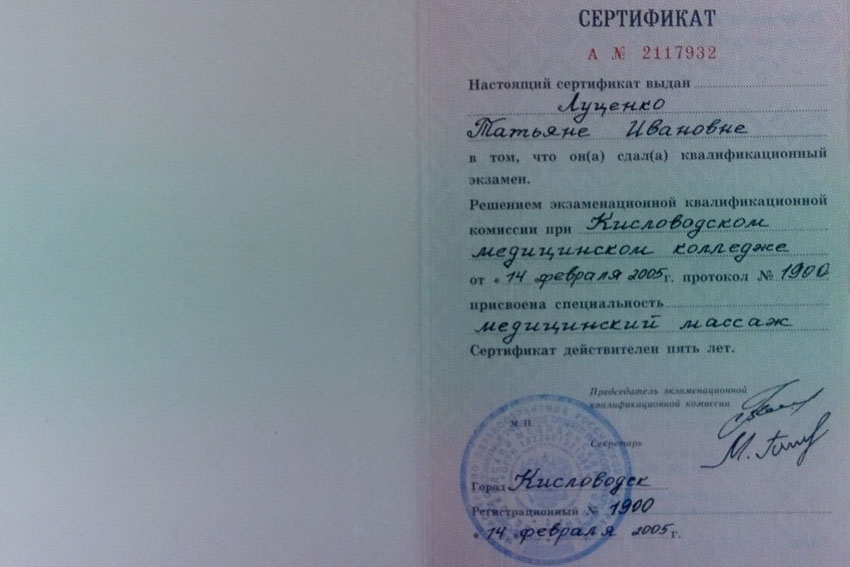 СЕРТИФИКАТ
А № 2117932
Настоящий сертификат выдан
Луценко
Татьяне Ивановне
в том, что он(а) сдал(а) квалификационный
экзамен.
Решением экзаменационной квалификационной
комиссии при Кисловодском
медицинском колледже
от « 14 февраля 2005г. протокол № 1900
присвоена специальность
медицинский массаж
Сертификат действителен пять лет.
Председатель экзаменационной
квалификационной комиссии
М.П.
Секретарь
Город Кисловодск
Регистрационный № 1900
« 14 февраля 2005г.